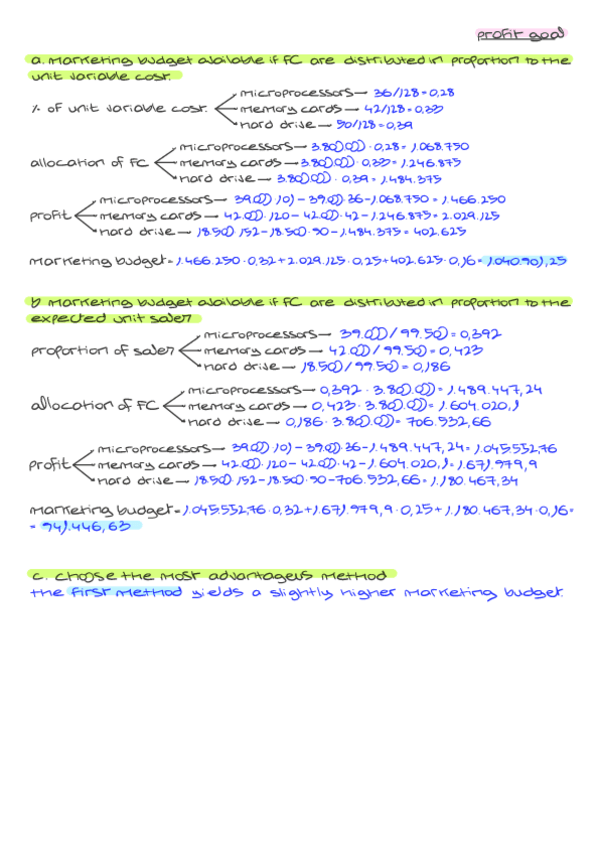 profit goal
a. marketing budget available if FC are distributed in proportion to the
unit variable cost.
microprocessors → 36/128 = 0,28
% of unit variable cost. memory cards → 42/128 = 0,33
hard drive → 50/128 = 0,39
microprocessors → 3.800.000 · 0,28 = 1.068.750
allocation of FC memory cards → 3.800.000 · 0,33 = 1.246.875
hard drive → 3.800.000 · 0,39 = 1.484.375
microprocessors → 39.000 · 101 - 39.000 · 36 - 1.068.750 = 1.466.250
profit memory cards → 42.000 · 120 - 42.000 · 42 - 1.246.875 = 2.029.125
hard drive → 18.500 · 152 - 18.500 · 50 - 1.484.375 = 402.625
marketing budget = 1.466.250 · 0,32 + 2.029.125 · 0,25 + 402.625 · 0,16 = 1.040.901,25
b marketing budget available if FC are distributed in proportion to the
expected unit sales
microprocessors → 39.000 / 99.500 = 0,392
proportion of sales memory cards → 42.000 / 99.500 = 0,423
hard drive → 18.500 / 99.500 = 0,186
microprocessors → 0,392 · 3.800.000 = 1.489.447,24
allocation of FC memory cards → 0,423 · 3.800.000 = 1.604.020,1
hard drive → 0,186 · 3.800.000 = 706.532,66
microprocessors → 39.000 · 101 - 39.000 · 36 - 1.489.447,24 = 1.045.552,76
profit memory cards → 42.000 · 120 - 42.000 · 42 - 1.604.020,1 = 1.671.979,9
hard drive → 18.500 · 152 - 18.500 · 50 - 706.532,66 = 1.180.467,34
marketing budget = 1.045.552,76 · 0,32 + 1.671.979,9 · 0,25 + 1.180.467,34 · 0,16 =
= 941.446,63
c. choose the most advantageus method
the first method yields a slightly higher marketing budget.